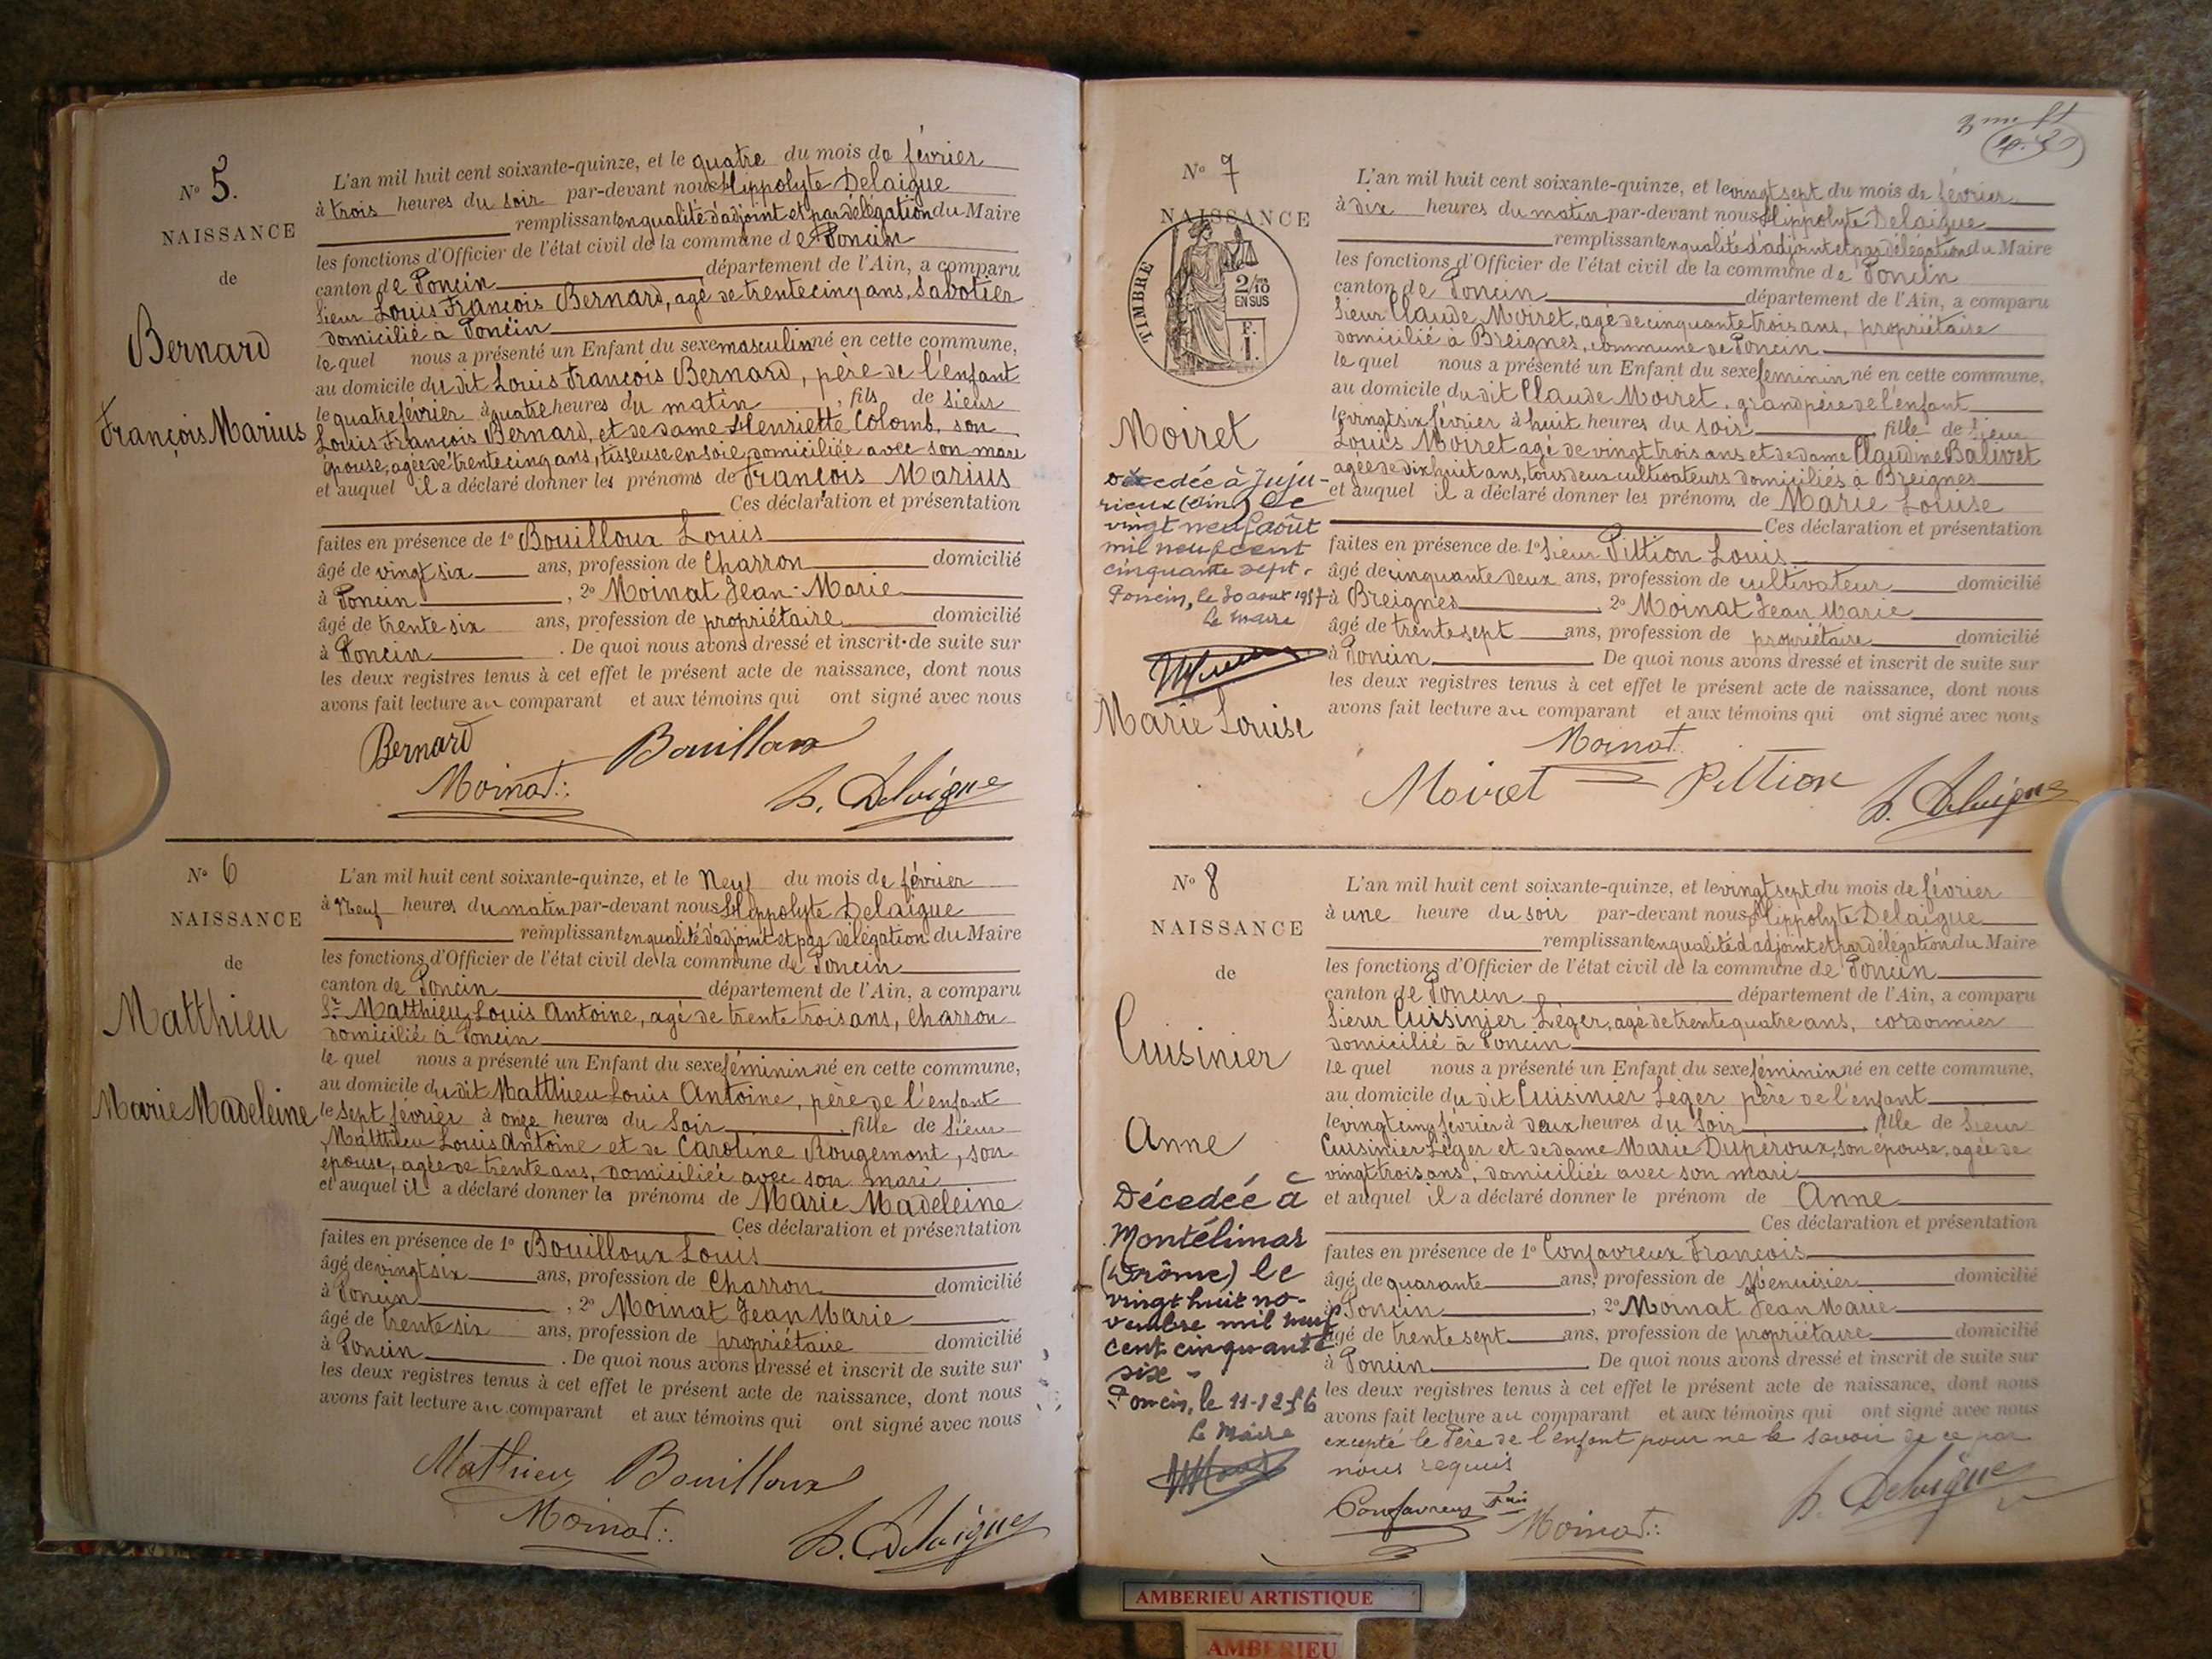 N° 5.
NAISSANCE
de
Bernard
François Marius
L'an mil huit cent soixante-quinze, et le quatre du mois de février
à trois heures du soir par-devant nous Hippolyte Delaigue
remplissant en qualité d'adjoint et par délégation du Maire
les fonctions d'Officier de l'état civil de la commune de Poncin
canton de Poncin département de l'Ain, a comparu
Sieur Louis François Bernard, agé de trente cinq ans, Sabotier
domicilié à Poncin
le quel nous a présenté un Enfant du sexe masculin né en cette commune,
au domicile du dit Louis François Bernard, père de l'enfant
le quatre février à quatre heures du matin, fils de Sieur
Louis François Bernard, et de dame Henriette Colomb, son
épouse, agée de trente cinq ans, tisseuse en soie, domiciliée avec son mari
et auquel il a déclaré donner les prénoms de François Marius
Ces déclaration et présentation
faites en présence de 1° Bouilloux Louis
âgé de vingt six ans, profession de Charron domicilié
à Poncin, 2° Moinat Jean-Marie
âgé de trente six ans, profession de propriétaire domicilié
à Poncin. De quoi nous avons dressé et inscrit de suite sur
les deux registres tenus à cet effet le présent acte de naissance, dont nous
avons fait lecture au comparant et aux témoins qui ont signé avec nous
Bernard Bouilloux
Moinat H. Delaigue
N° 6
NAISSANCE
de
Matthieu
Marie Madeleine
L'an mil huit cent soixante-quinze, et le Neuf du mois de février
à Neuf heures du matin par-devant nous Hippolyte Delaigue
remplissant en qualité d'adjoint et par délégation du Maire
les fonctions d'Officier de l'état civil de la commune de Poncin
canton de Poncin département de l'Ain, a comparu
Sr Matthieu Louis Antoine, agé de trente trois ans, charron
domicilié à Poncin
le quel nous a présenté un Enfant du sexe féminin né en cette commune,
au domicile du dit Matthieu Louis Antoine, père de l'enfant
le sept février à onze heures du Soir, fille de Sieur
Matthieu Louis Antoine et de Caroline Rougemont, son
épouse, agée de trente ans, domiciliée avec son mari
et auquel il a déclaré donner les prénoms de Marie Madeleine
Ces déclaration et présentation
faites en présence de 1° Bouilloux Louis
âgé de vingt six ans, profession de Charron domicilié
à Poncin, 2° Moinat Jean Marie
âgé de trente six ans, profession de propriétaire domicilié
à Poncin. De quoi nous avons dressé et inscrit de suite sur
les deux registres tenus à cet effet le présent acte de naissance, dont nous
avons fait lecture au comparant et aux témoins qui ont signé avec nous
Mathieu Bouilloux
Moinat H. Delaigue
N° 7
NAISSANCE
TIMBRE
2/10
EN SUS
F.
1.
Moiret
décédée à Juju-
rieux (Ain) le
vingt neuf août
mil neuf cent
cinquante sept.
Poncin, le 30 août 1957
le maire
Marie Louise
L'an mil huit cent soixante-quinze, et le vingt sept du mois de février
à dix heures du matin par-devant nous Hippolyte Delaigue
remplissant en qualité d'adjoint et par délégation du Maire
les fonctions d'Officier de l'état civil de la commune de Poncin
canton de Poncin département de l'Ain, a comparu
Sieur Claude Moiret, agé de cinquante trois ans, propriétaire
domicilié à Breignes, commune de Poncin
le quel nous a présenté un Enfant du sexe féminin né en cette commune,
au domicile du dit Claude Moiret, grand père de l'enfant
le vingt six février à huit heures du soir, fille de Sieur
Louis Moiret agé de vingt trois ans et de dame Claudine Balivet
agée de dix huit ans, tous deux cultivateurs domiciliés à Breignes
et auquel il a déclaré donner les prénoms de Marie Louise
Ces déclaration et présentation
faites en présence de 1° Sieur Pittion Louis
âgé de cinquante deux ans, profession de cultivateur domicilié
à Breignes, 2° Moinat Jean Marie
âgé de trente sept ans, profession de propriétaire domicilié
à Poncin. De quoi nous avons dressé et inscrit de suite sur
les deux registres tenus à cet effet le présent acte de naissance, dont nous
avons fait lecture au comparant et aux témoins qui ont signé avec nous
Moinat
Moiret Pittion H. Delaigue
N° 8
NAISSANCE
de
Cuisinier
Anne
Décédée à
Montélimar
(Drôme) le
vingt huit no-
vembre mil neuf
cent cinquante
six -
Poncin, le 11-12 56
le Maire
L'an mil huit cent soixante-quinze, et le vingt sept du mois de février
à une heure du soir par-devant nous Hippolyte Delaigue
remplissant en qualité d'adjoint et par délégation du Maire
les fonctions d'Officier de l'état civil de la commune de Poncin
canton de Poncin département de l'Ain, a comparu
Sieur Cuisinier Léger, agé de trente quatre ans, cordonnier
domicilié à Poncin
le quel nous a présenté un Enfant du sexe féminin né en cette commune,
au domicile du dit Cuisinier Léger père de l'enfant
le vingt cinq février à deux heures du Soir, fille de Sieur
Cuisinier Léger et de dame Marie Dupéroux, son épouse, agée de
vingt trois ans, domiciliée avec son mari
et auquel il a déclaré donner le prénom de Anne
Ces déclaration et présentation
faites en présence de 1° Confavreux François
âgé de quarante ans, profession de Menuisier domicilié
à Poncin, 2° Moinat Jean Marie
âgé de trente sept ans, profession de propriétaire domicilié
à Poncin. De quoi nous avons dressé et inscrit de suite sur
les deux registres tenus à cet effet le présent acte de naissance, dont nous
avons fait lecture au comparant et aux témoins qui ont signé avec nous
excepté le Père de l'enfant pour ne le savoir de ce par
nous requis
Confavreux Fois Moinat H. Delaigue
AMBERIEU ARTISTIQUE
AMBERIEU